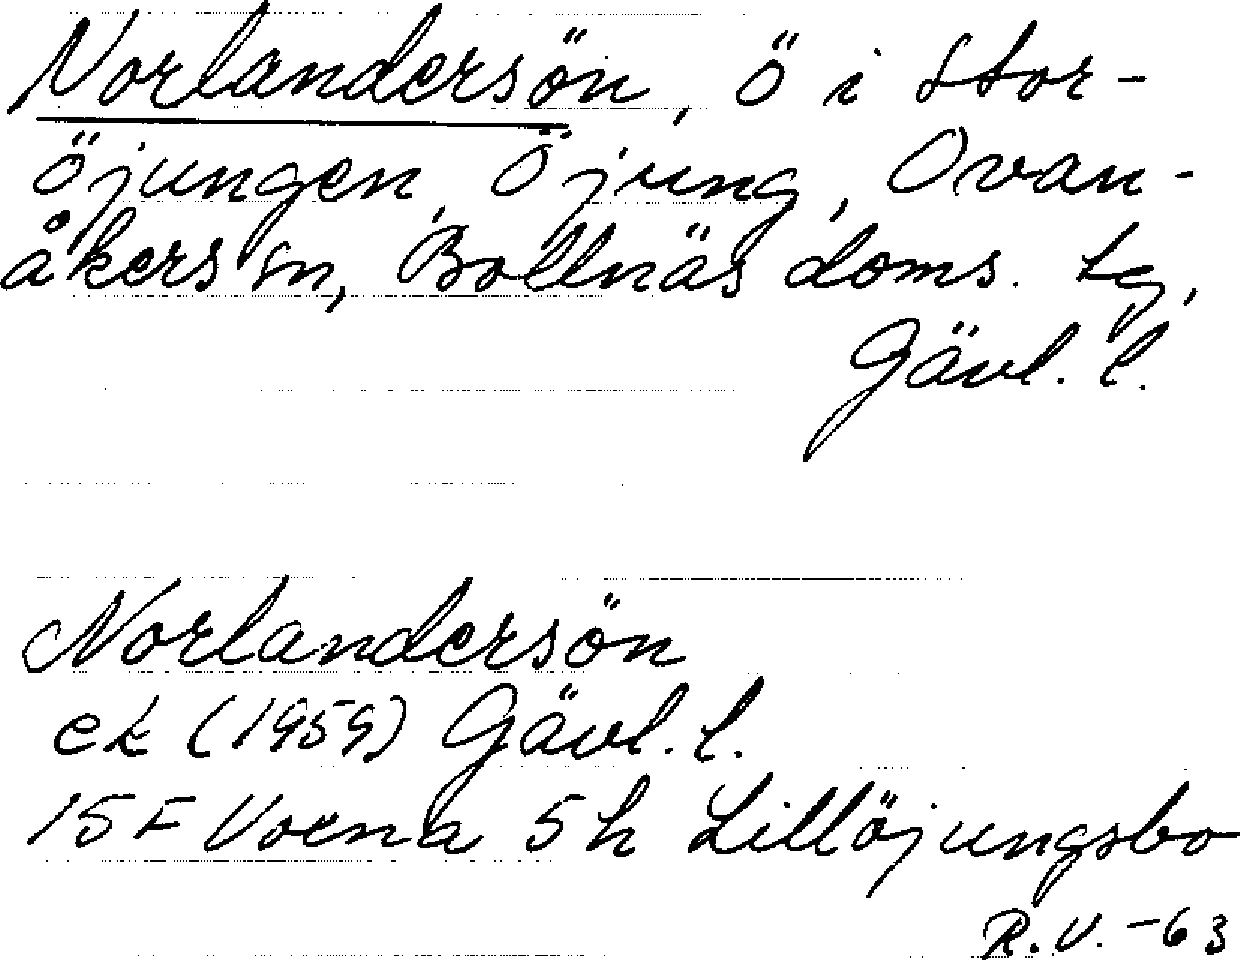 Norlandersön, ö i Stor-
öjungen, Öjung, Ovan-
åkers sn, Bollnäs doms. tg,
Gävl. l.
Norlandersön
ek (1959) Gävl. l.
15F Voxna 5h Lillöjungsbo
R.V. -63